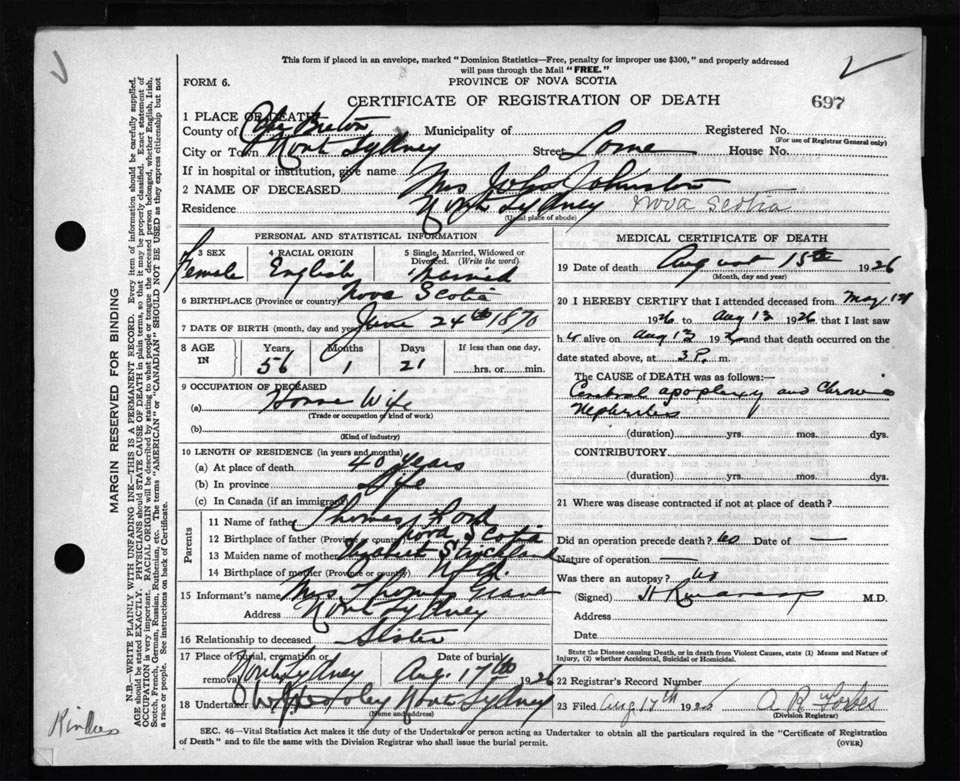 This form if placed in an envelope, marked "Dominion Statistics—Free, penalty for improper use $300," and properly addressed
will pass through the Mail "FREE."
FORM 6.
PROVINCE OF NOVA SCOTIA
CERTIFICATE OF REGISTRATION OF DEATH
697
1 PLACE OF DEATH
County of Cape Breton Municipality of Registered No.
(For use of Registrar General only)
City or Town North Sydney Street Lorne House No.
If in hospital or institution, give name
2 NAME OF DECEASED Mrs John Johnston
Residence North Sydney Nova Scotia
(Usual place of abode)
PERSONAL AND STATISTICAL INFORMATION
3 SEX Female
4 RACIAL ORIGIN English
5 Single, Married, Widowed or Divorced. (Write the word) Married
6 BIRTHPLACE (Province or country) Nova Scotia
7 DATE OF BIRTH (month, day and year) June 24th 1870
8 AGE IN
Years 56
Months 1
Days 21
If less than one day,
hrs. or min.
9 OCCUPATION OF DECEASED
(a) House Wife
(Trade or occupation of kind of work)
(b)
(Kind of industry)
10 LENGTH OF RESIDENCE (in years and months)
(a) At place of death 40 years
(b) In province Life
(c) In Canada (if an immigrant)
Parents
11 Name of father Thomas
12 Birthplace of father (Province or country) Nova Scotia
13 Maiden name of mother
14 Birthplace of mother (Province or country) Nfld.
15 Informant's name Mrs
Address North Sydney
16 Relationship to deceased Sister
17 Place of burial, cremation or removal North Sydney
Date of burial Aug. 17th 1926
18 Undertaker North Sydney
(Name and address)
MEDICAL CERTIFICATE OF DEATH
19 Date of death August 15th 1926
(Month, day and year)
20 I HEREBY CERTIFY that I attended deceased from May
1926 to Aug 13 1926 that I last saw
h alive on Aug 13 192 and that death occurred on the
date stated above, at 3 P. m.
The CAUSE of DEATH was as follows:—
apoplexy and Chronic
Nephritis
(duration) yrs. mos. dys.
CONTRIBUTORY
(duration) yrs. mos. dys.
21 Where was disease contracted if not at place of death?
Did an operation precede death? no Date of —
Nature of operation —
Was there an autopsy? no
(Signed) M.D.
Address
Date
State the Disease causing Death, or in death from Violent Causes, state (1) Means and Nature of
Injury, (2) whether Accidental, Suicidal or Homicidal.
22 Registrar's Record Number
23 Filed Aug 17th 1926 A R Forbes
(Division Registrar)
SEC. 46—Vital Statistics Act makes it the duty of the Undertaker or person acting as Undertaker to obtain all the particulars required in the "Certificate of Registration
of Death" and to file the same with the Division Registrar who shall issue the burial permit.
(OVER)
MARGIN RESERVED FOR BINDING
N.B.—WRITE PLAINLY WITH UNFADING INK—THIS IS A PERMANENT RECORD. Every item of information should be carefully supplied.
AGE should be stated EXACTLY. PHYSICIANS should STATE CAUSE OF DEATH in plain terms, so that it may be properly classified. Exact statement of
OCCUPATION is very important. RACIAL ORIGIN will be described by stating to what people or tongue the deceased person belonged, whether English, Irish,
Scotch, French, German, Russian, Ruthenian, etc. The terms "AMERICAN" or "CANADIAN" SHOULD NOT BE USED as they express citizenship but not
a race or people. See instructions on back of Certificate.